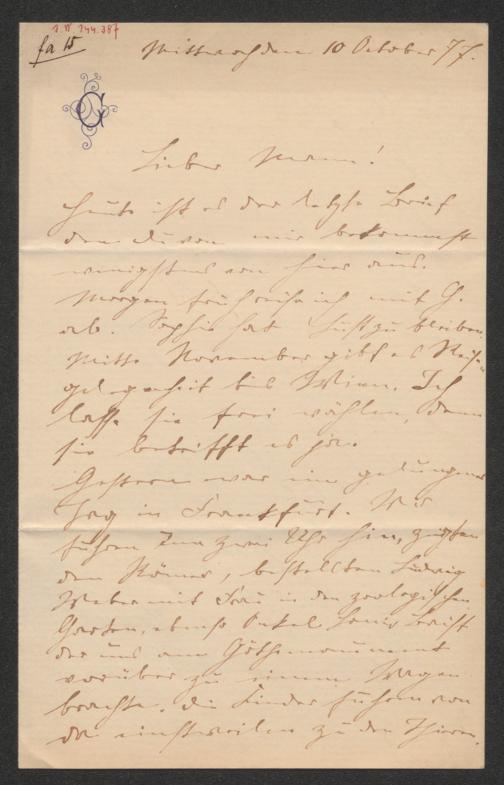 I.N. 144.387
fa 15
Mittwoch den 10 October 77.
G
Lieber Mann!
Heute ist es der letzte Brief
den du von mir bekommst
wenigstens von hier aus.
Morgen früh reise ich mit G.
ab. Sophie hat Lust zu bleiben.
Mitte November gibt es Reise-
gelegenheit bis Wien. Ich
lasse sie frei wählen, denn
sie betrifft es ja.
Gestern war ein gelungener
Tag in Frankfurt. Wir
fuhren um zwei Uhr hin, zeigten
den Römer, bestellten Ludwig
Weber mit Frau in den zoologischen
Garten, ebenso Onkel Louis
der uns am Göthemonument
vorüber zu einem Wagen
brachte. Die Kinder fuhren von
da einstweilen zu den Thieren.